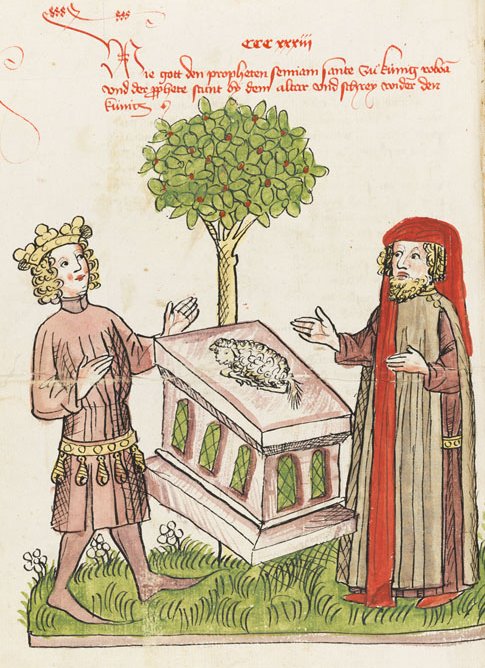 CCC xxxiii
Wie gott den propheten semiam sante zu kúnig roboa
vnd der prophete stunt by dem altar vnd schrey wider den
kúnig